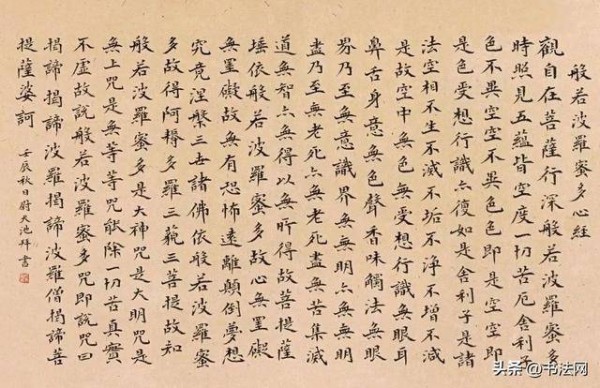 般若波羅蜜多心經
觀自在菩薩行深般若波羅蜜多
時照見五蘊皆空度一切苦厄舍利子
色不異空空不異色色即是空空即
是色受想行識亦復如是舍利子是諸
法空相不生不滅不垢不淨不增不減
是故空中無色無受想行識無眼耳
鼻舌身意無色聲香味觸法無眼
界乃至無意識界無無明亦無無明
盡乃至無老死亦無老死盡無苦集滅
道無智亦無得以無所得故菩提薩
埵依般若波羅蜜多故心無罣礙
無罣礙故無有恐怖遠離顛倒夢想
究竟涅槃三世諸佛依般若波羅蜜
多故得阿耨多羅三藐三菩提故知
般若波羅蜜多是大神咒是大明咒是
無上咒是無等等咒能除一切苦真實
不虛故說般若波羅蜜多咒即說咒曰
揭諦揭諦波羅揭諦波羅僧揭諦菩
提薩婆訶
壬辰秋日尉天池拜書
头条 @书法网